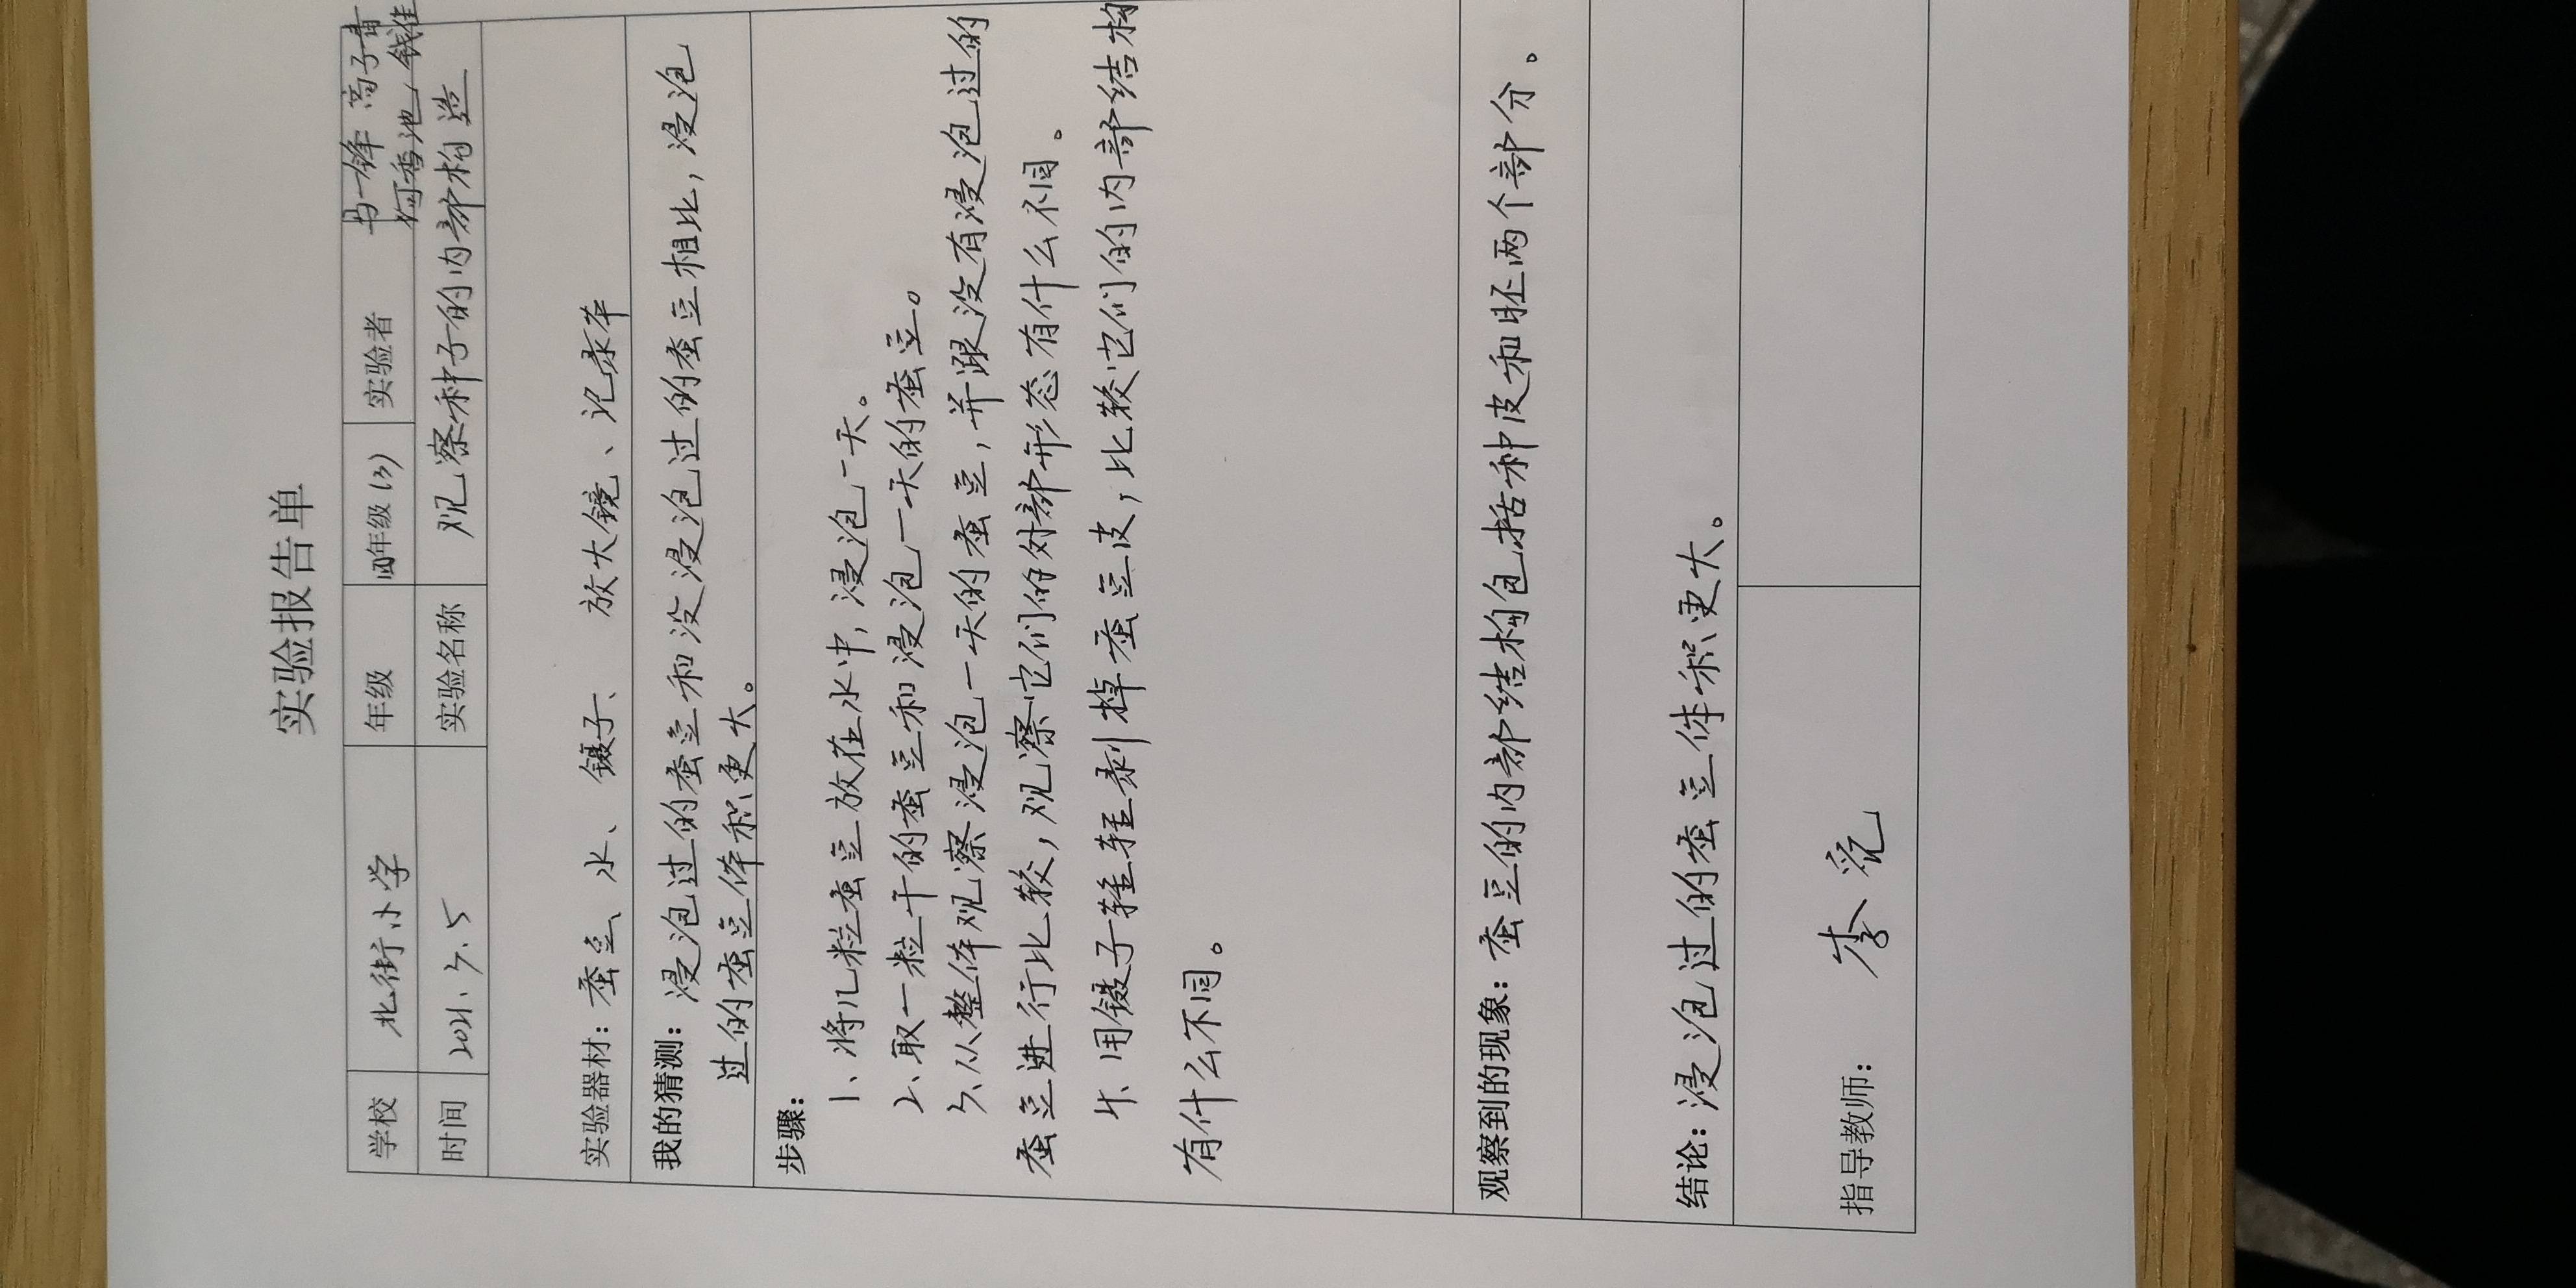 实验报告单
学校 北街小学 年级 四年级(3) 实验者 马一锋 高子青
何香池
时间 2021.3.5 实验名称 观察种子的内部构造
实验器材：蚕豆、水、镊子、放大镜、记录单
我的猜测：浸泡过的蚕豆和没浸泡过的蚕豆相比，浸泡
过的蚕豆体积更大。
步骤：
1、将几粒蚕豆放在水中，浸泡一天。
2、取一粒干的蚕豆和浸泡一天的蚕豆。
3、从整体观察浸泡一天的蚕豆，并跟没有浸泡过的
蚕豆进行比较，观察它们的外部形态有什么不同。
4、用镊子轻轻剥掉蚕豆皮，比较它们的内部结构
有什么不同。
观察到的现象：蚕豆的内部结构包括种皮和胚两个部分。
结论：浸泡过的蚕豆体积更大。
指导教师： 李